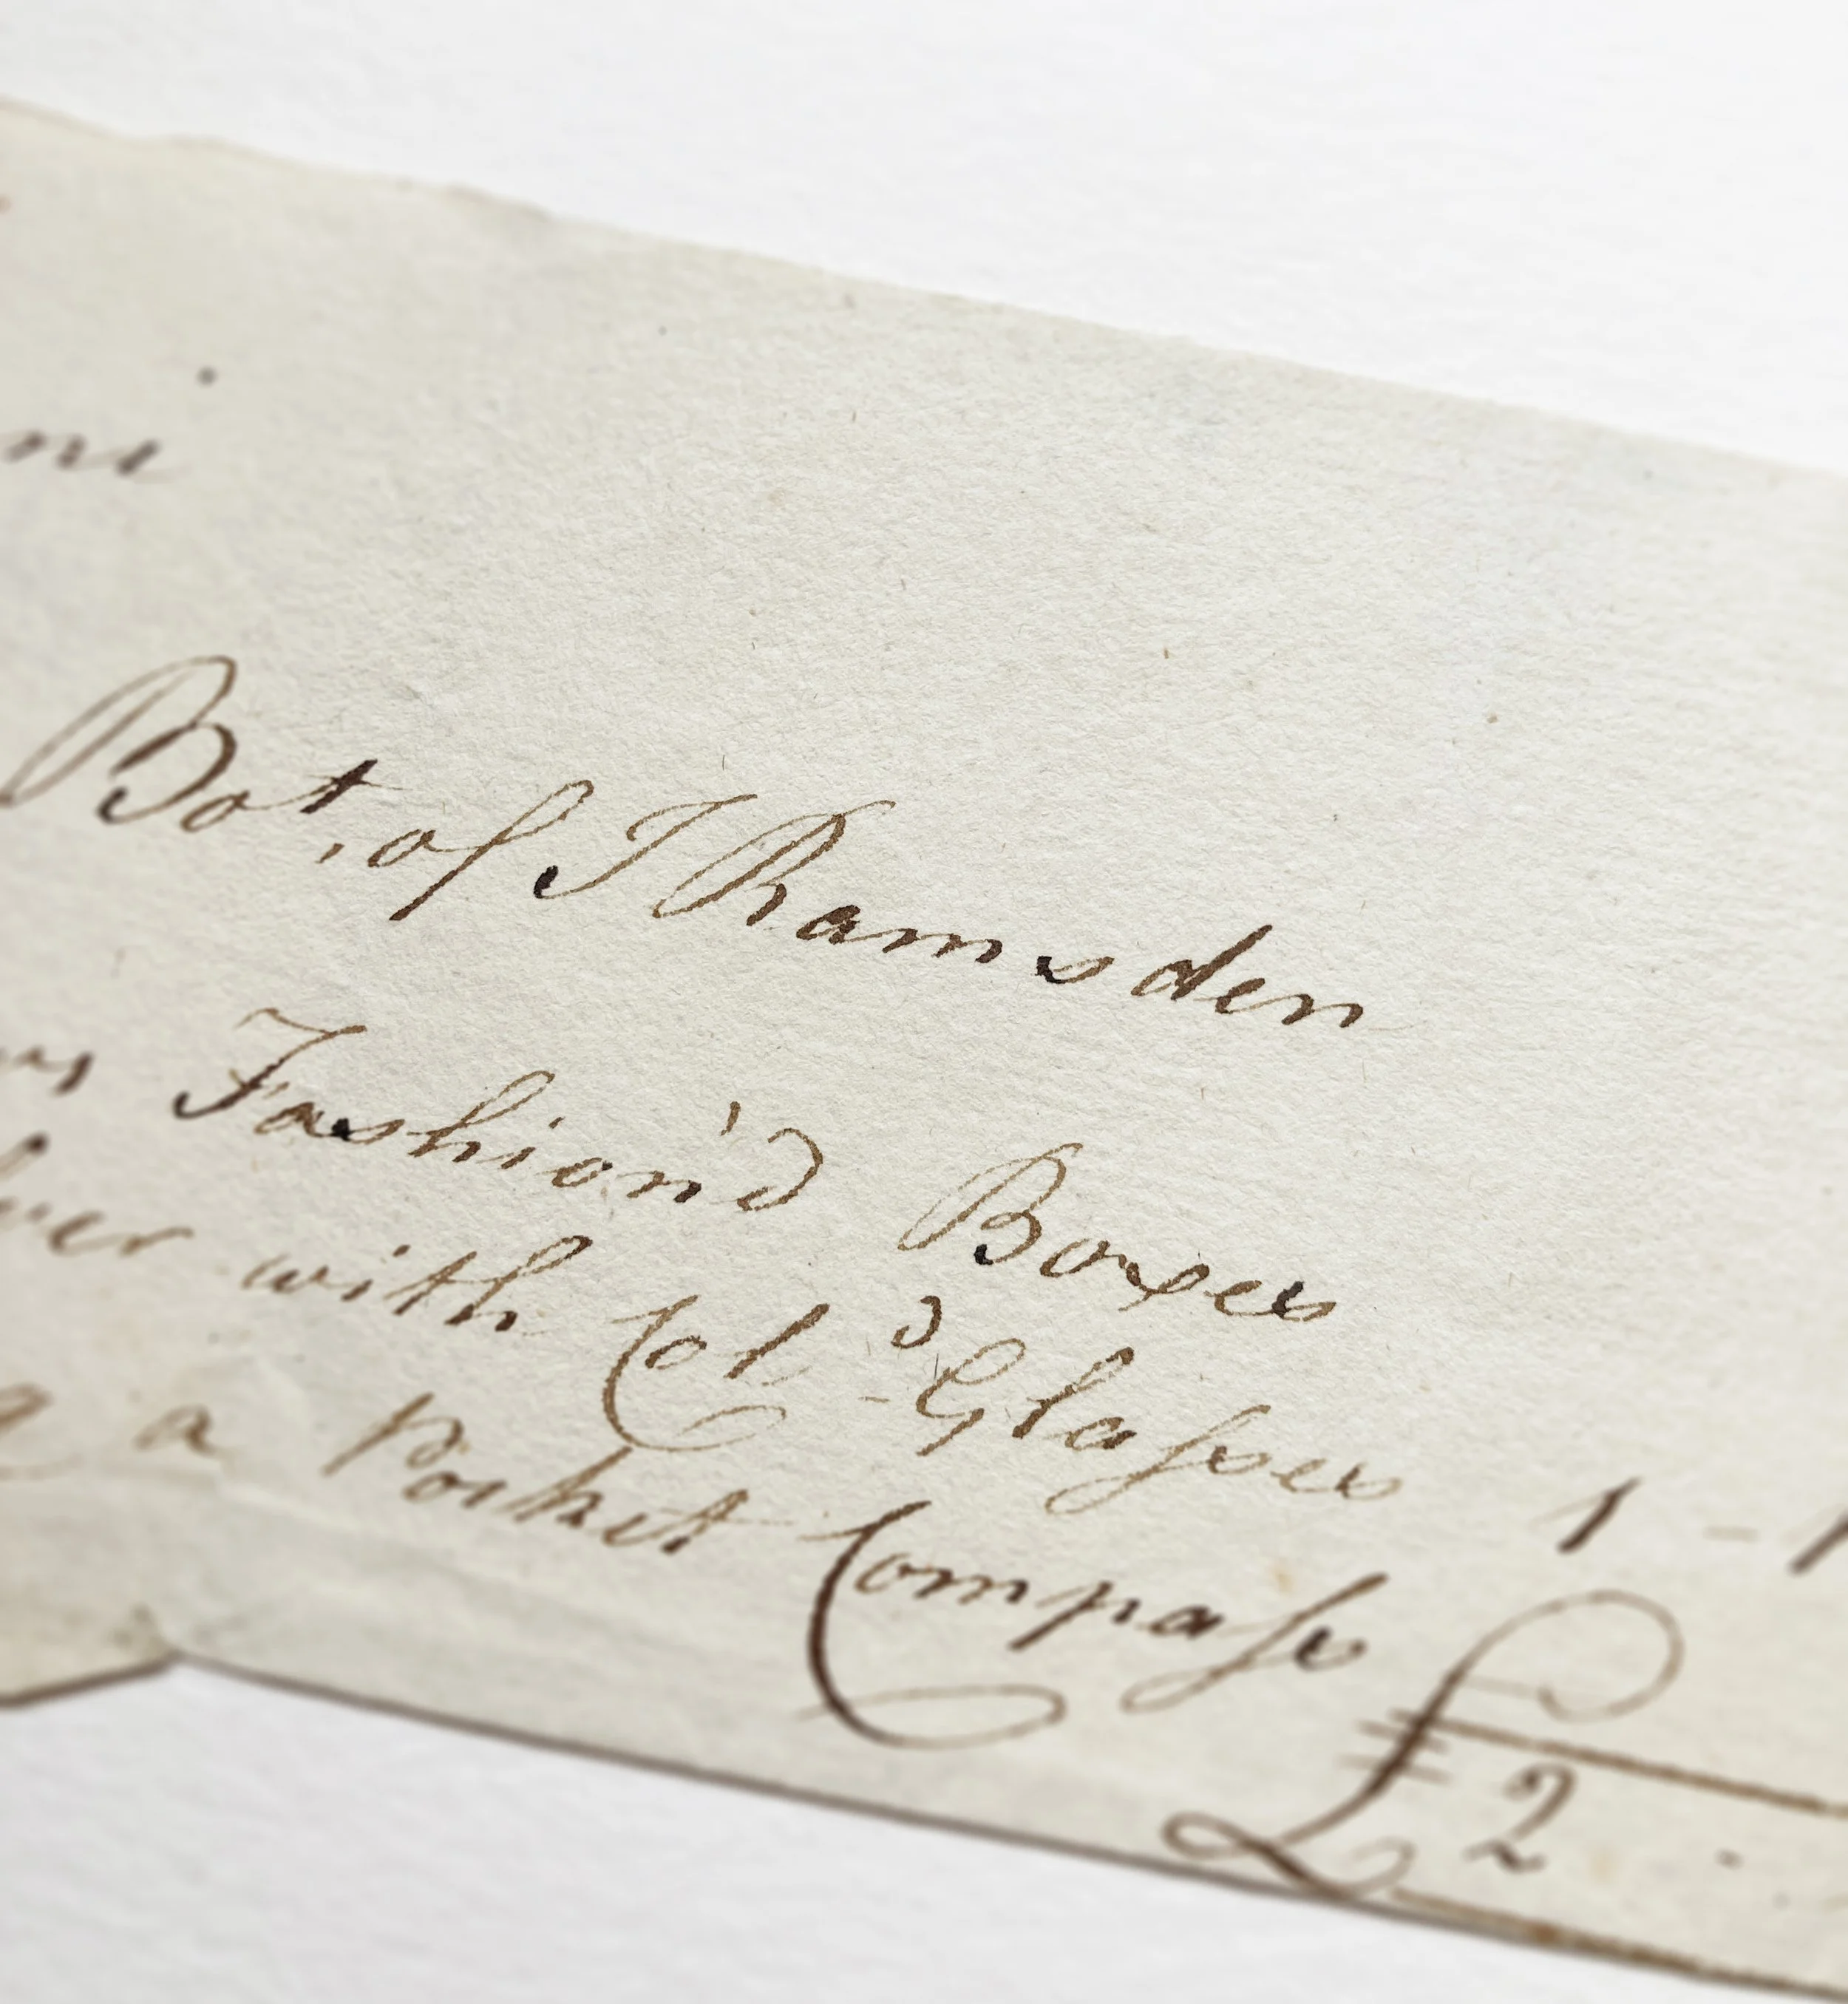 Bot. of J Ramsden
Fashion'd Boxes
with Col'd Glasses 1 -
a Pocket Compass
£ 2